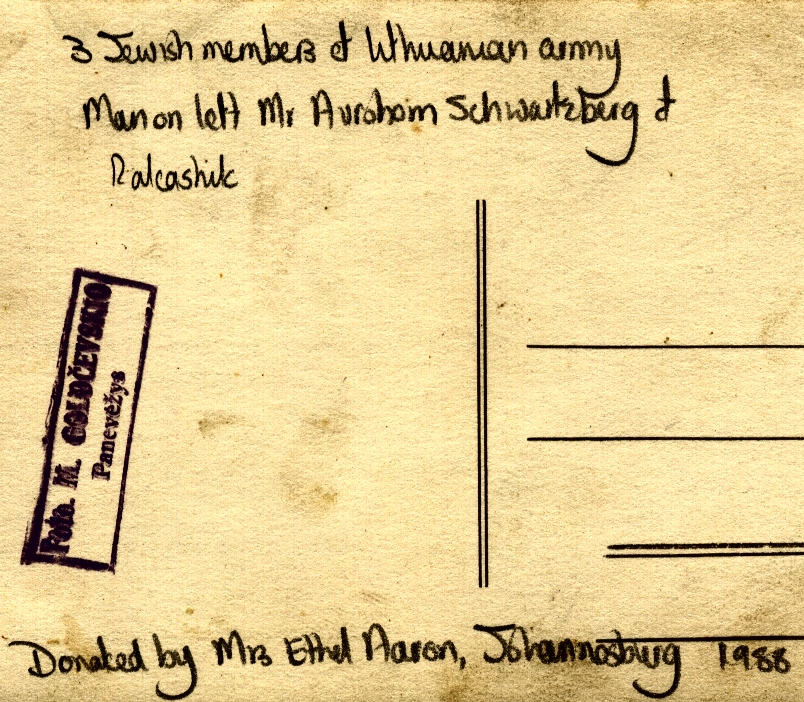 3 Jewish members of Lithuanian army
Man on left Mr Avrohom Schwartzberg of
Ralcashik
Foto. M. GOLDČEVSKIO
Panevėžys
Donated by Mrs Ethel Aaron, Johannesburg 1988